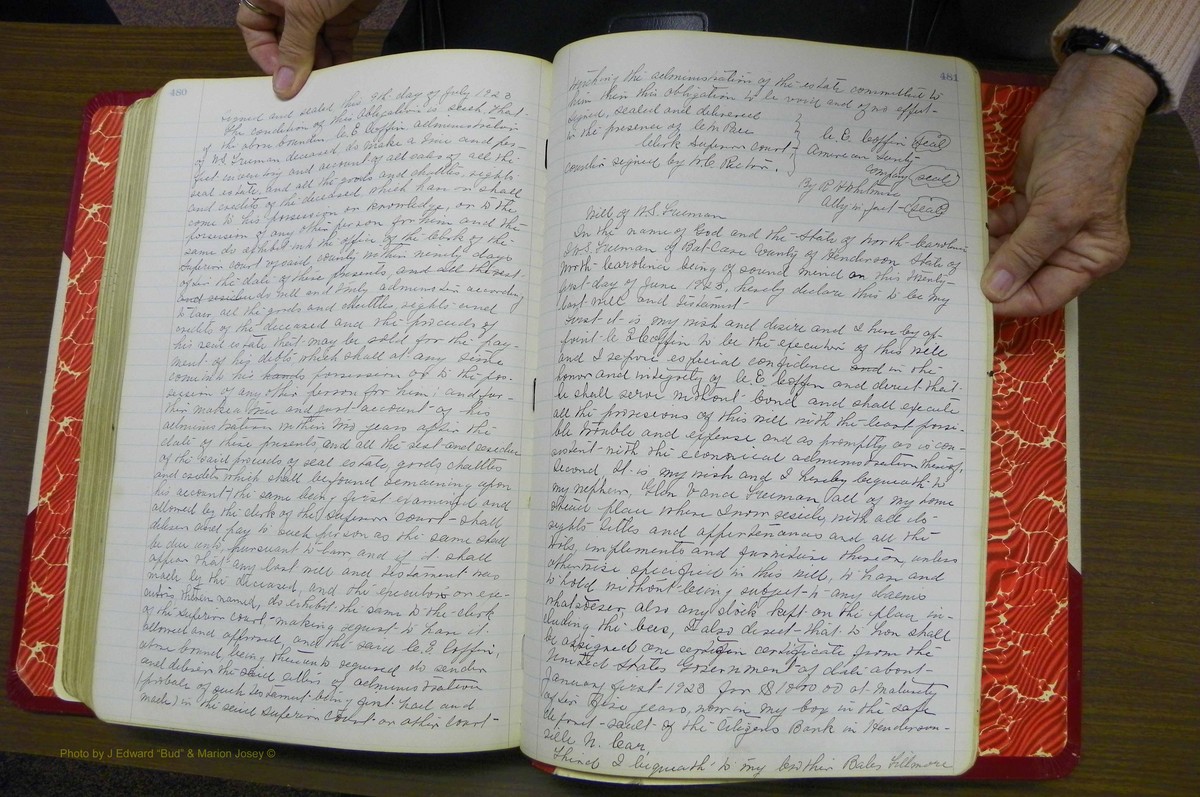 480
signed and sealed this 9th day of July 1923
The condition of this Obligation is such that
if the above bounden C. E. Coffin administrator
of W.S. Freeman deceased do make a true and per-
fect inventory and account of all sales of all the
real estate and all the goods and chattles, rights
and credits of the deceased which have or shall
come to his possession or knowledge, or to the
possession of any other person for him and the
same do exhibit into the office of the Clerk of the
Superior court of said county within ninety days
after the date of these presents, and all the rest
and residue do well and truly administer according
to law all the goods and chattles rights and
credits of the deceased and the proceeds of
his real estate that may be sold for the pay-
ment of his debts which shall at any time
come into his hands possession or to the pos-
session of any other person for him; and fur-
ther make a true and just account of his
administration within two years after the
date of these presents and all the rest and residue
of the said proceeds of real estate, goods chattles
and credits which shall be found remaining upon
his account (the same being first examined and
allowed by the clerk of the Superior court shall
deliver and pay to such person as the same shall
be due unto, pursuant to law and if it shall
appear that any last will and testament was
made by the deceased, and the executor or exe-
cutors therein named, do exhibit the same to the clerk
of the superior court making request to have it
allowed and approved, and the said C. E. Coffin,
above bound, being thereunto required do render
and deliver the said letters of administration
(probate of such testament being first had and
made) in the said superior court or other court
481
touching the administration of the estate committed to
him then this obligation to be void and of no effect.
Signed, sealed and delivered
in the presence of C M Pace
Clerk Superior court
Counter signed by W.C. Rector.
C. E. Coffin (Seal)
American Surety
Company (seal)
By R H Whitmire
Atty in fact (seal)
Will of W.S. Freeman
In the name of God and the State of North Carolina
I W.S. Freeman of Bat Cave County of Henderson State of
North Carolina being of sound mind on this twenty-
first day of June 1923, hereby declare this to be my
last will and testament.
First it is my wish and desire and I hereby ap-
point C. E. Coffin to be the executor of this will
and I repose especial confidence and in the
honor and integrity of C. E. Coffin and direct that
he shall serve without bond and shall execute
all the provisions of this will with the least possi-
ble trouble and expense and as promptly as is con-
sistent with the economical administration thereof,
Second It is my wish and I hereby bequeath to
my nephew, Glen Vance Freeman all of my home
stead place where I now reside, with all its
rights titles and appurtenances and all the
tools, implements and furniture thereon, unless
otherwise specified in this will, to have and
to hold without being subject to any claims
whatsoever, also any stock kept on the place in-
cluding the bees, I also direct that to him shall
be assigned one certain certificate from the
United States Government of date about
January first 1923 for $1000 00 at maturity
after five years, now in my box in the safe
deposit vault of the Citizens Bank in Henderson-
ville N. Car,
Third I bequeath to my brother Bales Fillmore
Photo by J Edward "Bud" & Marion Josey ©